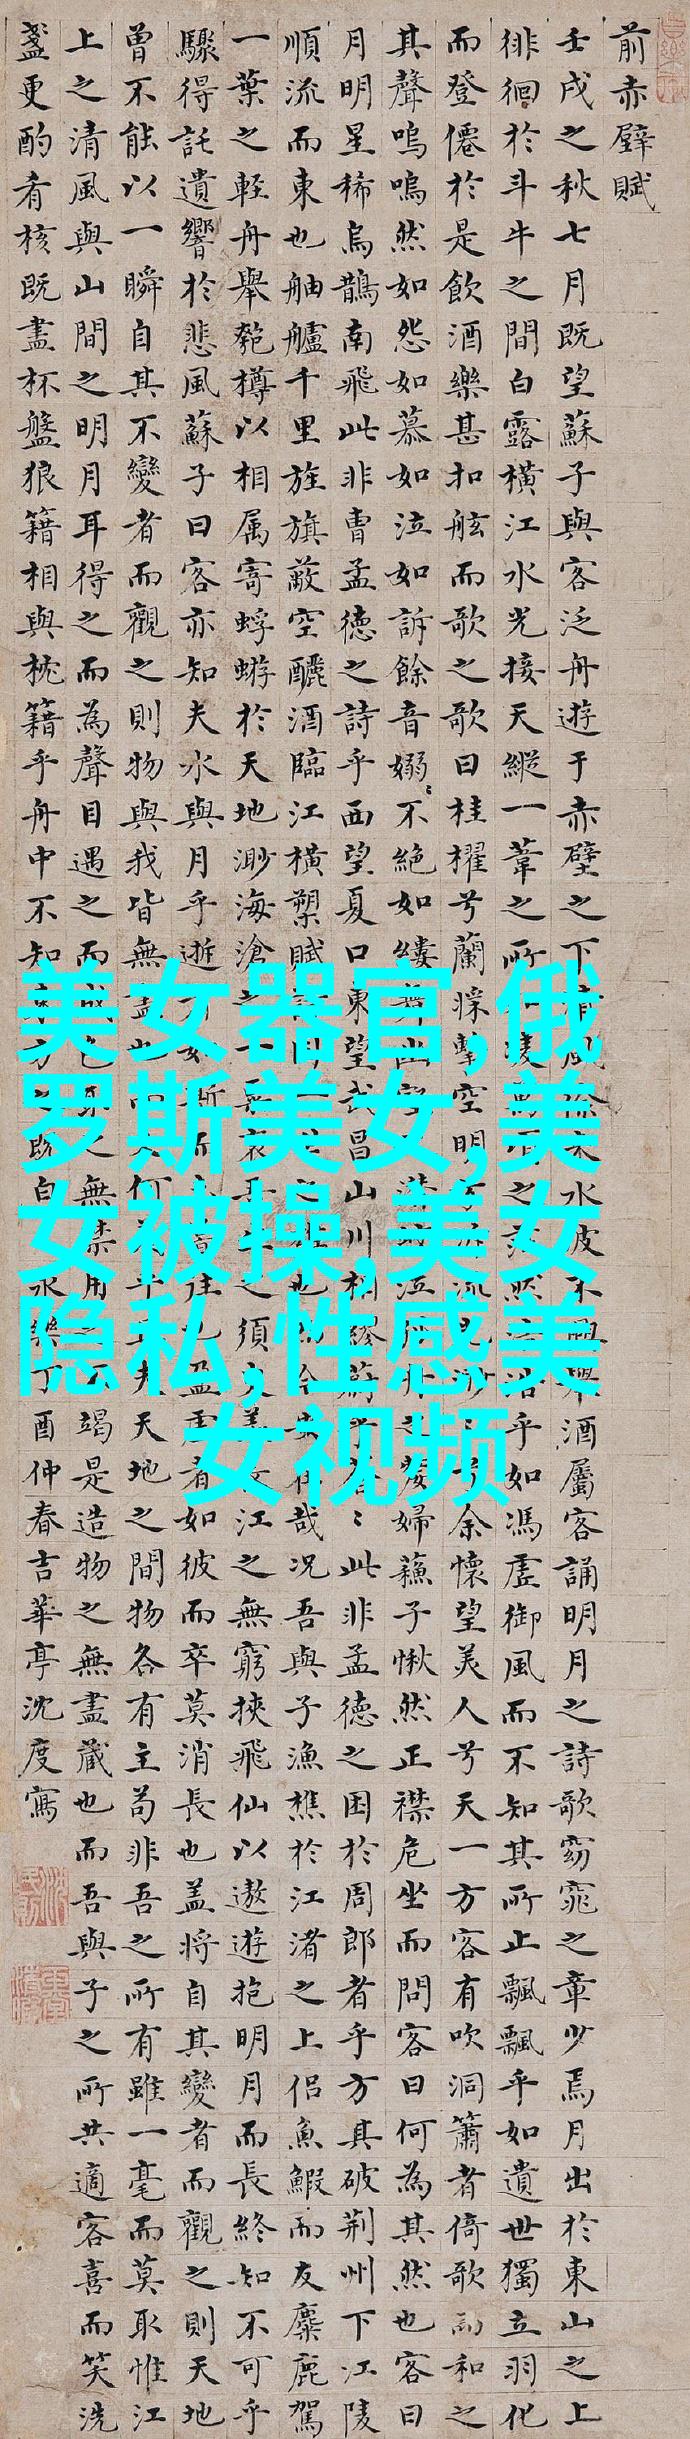 前赤壁賦
壬戌之秋七月既望蘇子與客泛舟遊于赤壁之下水波不興舉酒屬客誦明月之詩歌窈窕之章少焉月出於東山之上
徘徊於斗牛之間白露橫江水光接天縱一葦之所之茫然乎如馮虛御風而不知其所止飄飄乎如遺世獨立羽化
而登僊於是飲酒樂甚扣舷而歌之歌曰桂櫂兮蘭槳擊空明兮余懷望美人兮天一方客有吹洞簫者倚歌而和之
其聲嗚嗚然如怨如慕如泣如訴餘音嫋々不絕如縷舞幽泣之嫠婦蘓子愀然正襟危坐而問客曰何為其然也客曰
月明星稀烏鵲南飛此非曹孟德之詩乎西望夏口東望武昌山川相繆鬱乎蒼々此非孟德之困於周郎者乎方其破荊州下江陵
順流而東也舳艫千里旌旗蔽空釃酒臨江橫槊賦也哉況吾與子漁樵於江渚之上侶魚鰕而友麋鹿駕
一葉之輕舟舉匏樽以相属寄蜉蝣於天地渺海滄之一之須江之無窮挾飛仙以遨遊抱明月而長終知不可乎
驟得託遺響於悲風蘇子曰客亦知夫水與月乎逝斯往盈虛者如彼而卒莫消長也盖將自其變者而觀之則天地
曾不能以一瞬自其不變者而觀之則物與我皆無盡也何乎夫天地之間物各有主苟非吾之所有雖一毫而莫取惟江
上之清風與山間之明月耳得之而為聲目遇之而無禁用竭是造物之無盡藏也而吾與子之所共適客喜而笑洗
盞更酌肴核既盡杯盤狼籍相與枕籍乎舟中不知方既白永樂丁酉仲春吉華亭沈度寫
美女器官,俄
罗斯美女,美
女被操,美女
隐私,性感美
女视频